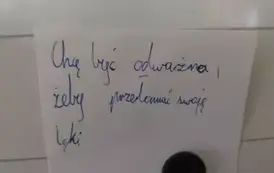 Chcę być odważna,
żeby przełamać swoje
lęki